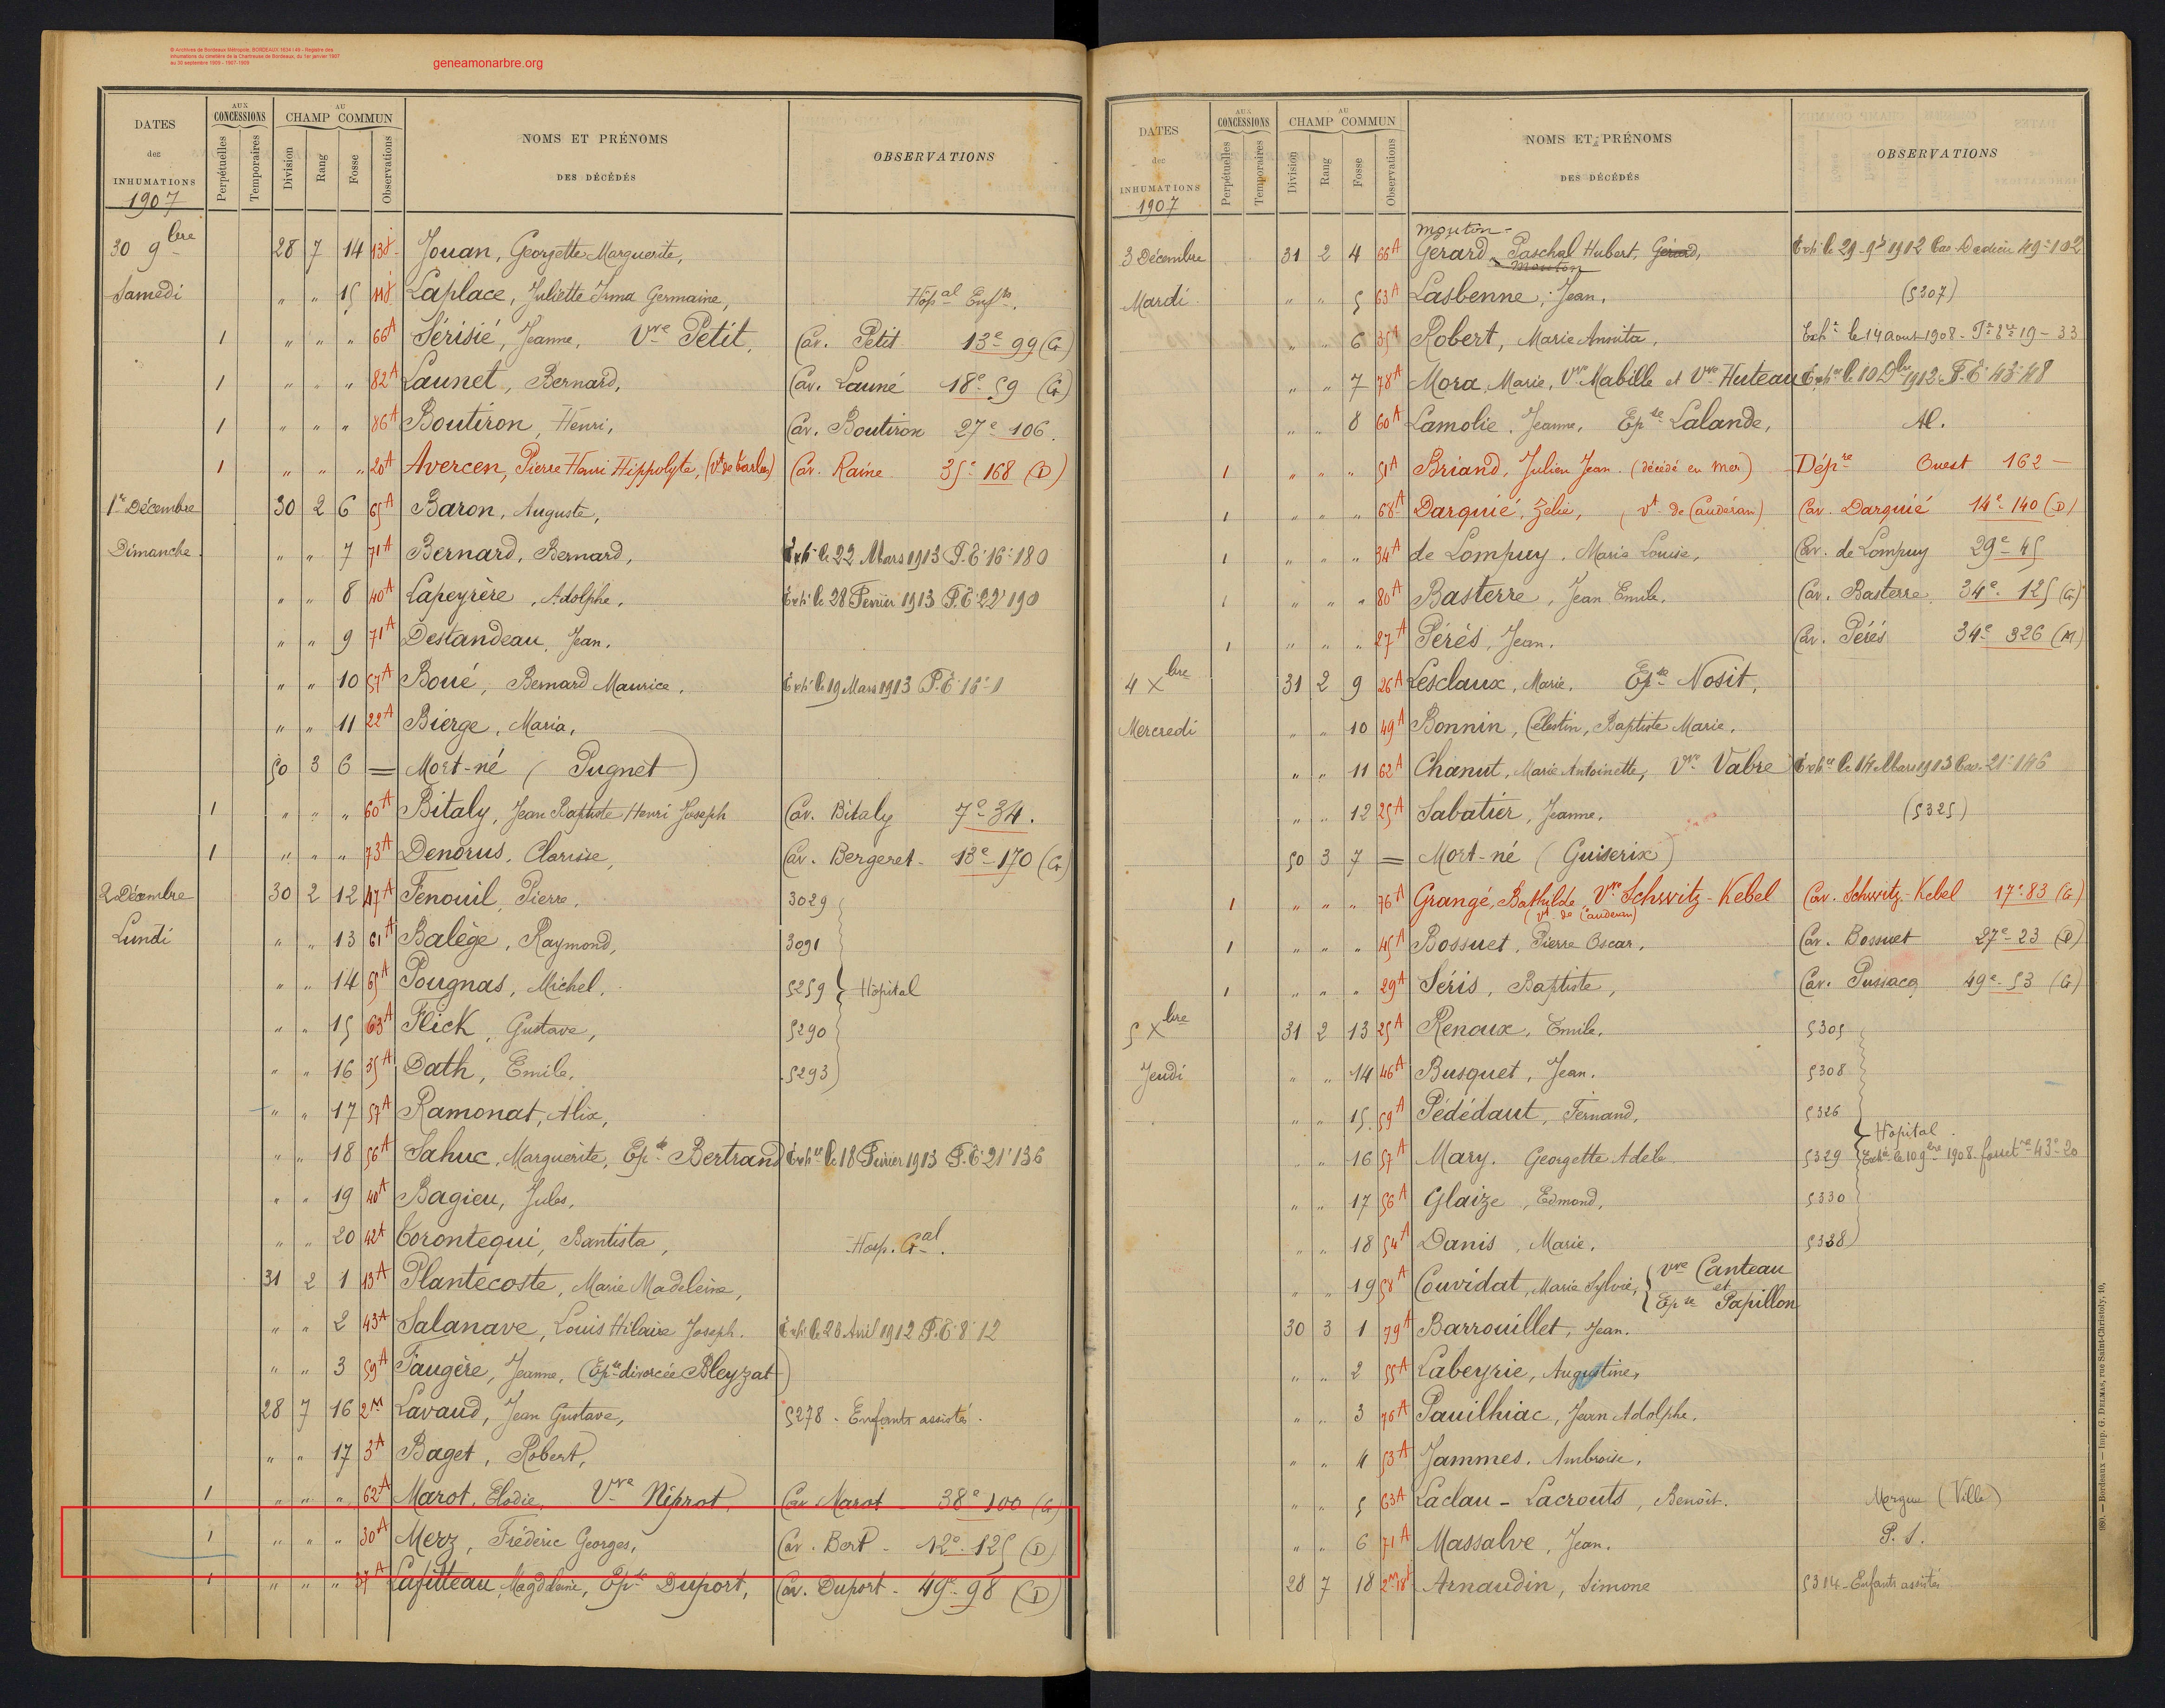 © Archives de Bordeaux Métropole, BORDEAUX 1634 I 49 - Registre des
inhumations du cimetière de la Chartreuse de Bordeaux, du 1er janvier 1907
au 30 septembre 1909 - 1907-1909
geneamonarbre.org
DATES des INHUMATIONS 1907
AUX CONCESSIONS Perpétuelles Temporaires
AU CHAMP COMMUN Division Rang Fosse Observations
NOMS ET PRÉNOMS DES DÉCÉDÉS
OBSERVATIONS
30 9bre 28 7 14 13j Jouan, Georgette Marguerite,
Samedi " " 15 Laplace, Juliette Irma Germaine, Hôpal Enfts.
1 " " " 66A Sérisié, Jeanne, Vve Petit, Cav. Petit 13e 99 (G)
1 " " " 82A Launet, Bernard, Cav. Launé 18e 59 (G)
1 " " " 86A Boutiron, Henri, Cav. Boutiron 27e 106.
1 " " " 20A Avercen, Pierre Henri Hippolyte, (Vt de Tarbes) Cav. Raine 35e 168 (D)
1er Décembre 30 2 6 65A Baron, Auguste,
Dimanche " " 7 71A Bernard, Bernard, Exhé le 22 Mars 1913 P.E 16e 180
" " 8 40A Lapeyrère, Adolphe, Exhé le 28 Février 1913 P.E 22e 190
" " 9 71A Destandeau, Jean.
" " 10 57A Boué, Bernard Maurice, Exhé le 19 Mars 1913 P.E 16e 1
" " 11 22A Bierge, Maria,
50 3 6 = Mort-né (Pugnet)
1 " " " 60A Bitaly, Jean Baptiste Henri Joseph Cav. Bitaly 7e 34.
1 " " " 73A Denorus, Clarisse, Cav. Bergeret - 13e 170 (G)
2 Décembre 30 2 12 47A Fenouil, Pierre, 3029
Lundi " " 13 61A Balège, Raymond, 3091
" " 14 65A Pougnas, Michel, 5259 Hôpital
" " 15 63A Flick, Gustave, 5290
" " 16 35A Dath, Emile, 5293
" " 17 57A Ramonat, Alix,
" " 18 56A Sahuc, Marguerite, Epse Bertrand Exhée le 18 Février 1913 P.E 21e 136
" " 19 40A Bagieu, Jules,
" " 20 42A Corontequi, Bautista, Hosp. Gal.
31 2 1 13A Plantecoste, Marie Madeleine,
" " 2 43A Salanave, Louis Hilaire Joseph. Exhé le 26 Avril 1912 P.E 8e 12
" " 3 59A Faugère, Jeanne, (Epse divorcée Bleyzat)
28 7 16 2M Lavaud, Jean Gustave, 5278 - Enfants assistés.
" " 17 3A Baget, Robert,
1 " " " 62A Marot, Elodie, Vve Niprot, Cav. Marot - 38e 100 (G)
1 " " " 30A Merz, Fréderic Georges, Cav. Bert - 12e 125 (D)
1 " " " 37A Lafitteau, Magdeleine, Epse Duport, Cav. Duport - 49e 98 (D)
DATES des INHUMATIONS 1907
AUX CONCESSIONS Perpétuelles Temporaires
AU CHAMP COMMUN Division Rang Fosse Observations
NOMS ET PRÉNOMS DES DÉCÉDÉS
OBSERVATIONS
mouton-
3 Décembre 31 2 4 66A Gerard, Paschal Hubert, Gérard, Exhé le 29 9bre 1912 Cav. Dedieu 49e 102
Mouton
Mardi " " 5 63A Lasbenne, Jean. (5307)
" " 6 35A Robert, Marie Annita, Exhée le 14 Aout 1908 - 19 - 33
" " 7 78A Mora, Marie, Vve Mabille et Vve Huteau Exhée le 10 Dbre 1912 P.E 43e 48
" " 8 60A Lamolie, Jeanne, Epse Lalande, Al.
1 " " " 51A Briand, Julien Jean. (décédé en mer) Dépre Ouest 162 -
1 " " " 68A Darquié, Zélie, (vt de Caudéran) Cav. Darquié 14e 140 (D)
1 " " " 34A de Lompuy, Marie Louise, Cav. de Lompuy 29e 45
1 " " " 80A Basterre, Jean Emile, Cav. Basterre 34e 125 (G)
1 " " " 27A Pérés, Jean. Cav. Pérés 34e 326 (M)
4 Xbre 31 2 9 26A Lesclaux, Marie, Epse Nosit,
Mercredi " " 10 49A Bonnin, Célestin, Baptiste Marie,
" " 11 62A Chanut, Marie Antoinette, Vve Vabre Exhée le 14 Mars 1913 Cav. 21e 146
" " 12 25A Sabatier, Jeanne, (5325)
50 3 7 = Mort-né (Guiserix)
1 " " " 76A Grangé, Bathilde, Vve Schwitz-Kebel Cav. Schwitz-Kebel 17e 83 (G)
(vt de Caudéran)
1 " " " 45A Bossuet, Pierre Oscar, Cav. Bossuet 27e 23 (D)
1 " " " 29A Séris, Baptiste, Cav. Pussacq 49e 53 (G)
5 Xbre 31 2 13 25A Renoux, Emile, 5305
Jeudi " " 14 46A Busquet, Jean. 5308
" " 15 59A Pédédaut, Fernand, 5326
Hôpital
" " 16 57A Mary, Georgette Adele 5329 Exhée le 10 9bre 1908 - 43e 20
" " 17 56A Glaize, Edmond, 5330
" " 18 54A Danis, Marie, 5338
" " 19 58A Couvidat, Marie Sylvie, Vve Canteau et Epse Papillon
30 3 1 79A Barrouillet, Jean.
" " 2 55A Labeyrie, Augustine,
" " 3 76A Pauilhiac, Jean Adolphe.
" " 4 53A Jammes, Ambroise,
" " 5 63A Laclau - Lacrouts, Benoît. Morgue (Ville)
" " 6 71A Massalve, Jean. P. S.
28 7 18 2m18j Arnaudin, Simone 5314 - Enfants assistés
980. — Bordeaux — Imp. G. DELMAS, rue Saint-Christoly, 10.